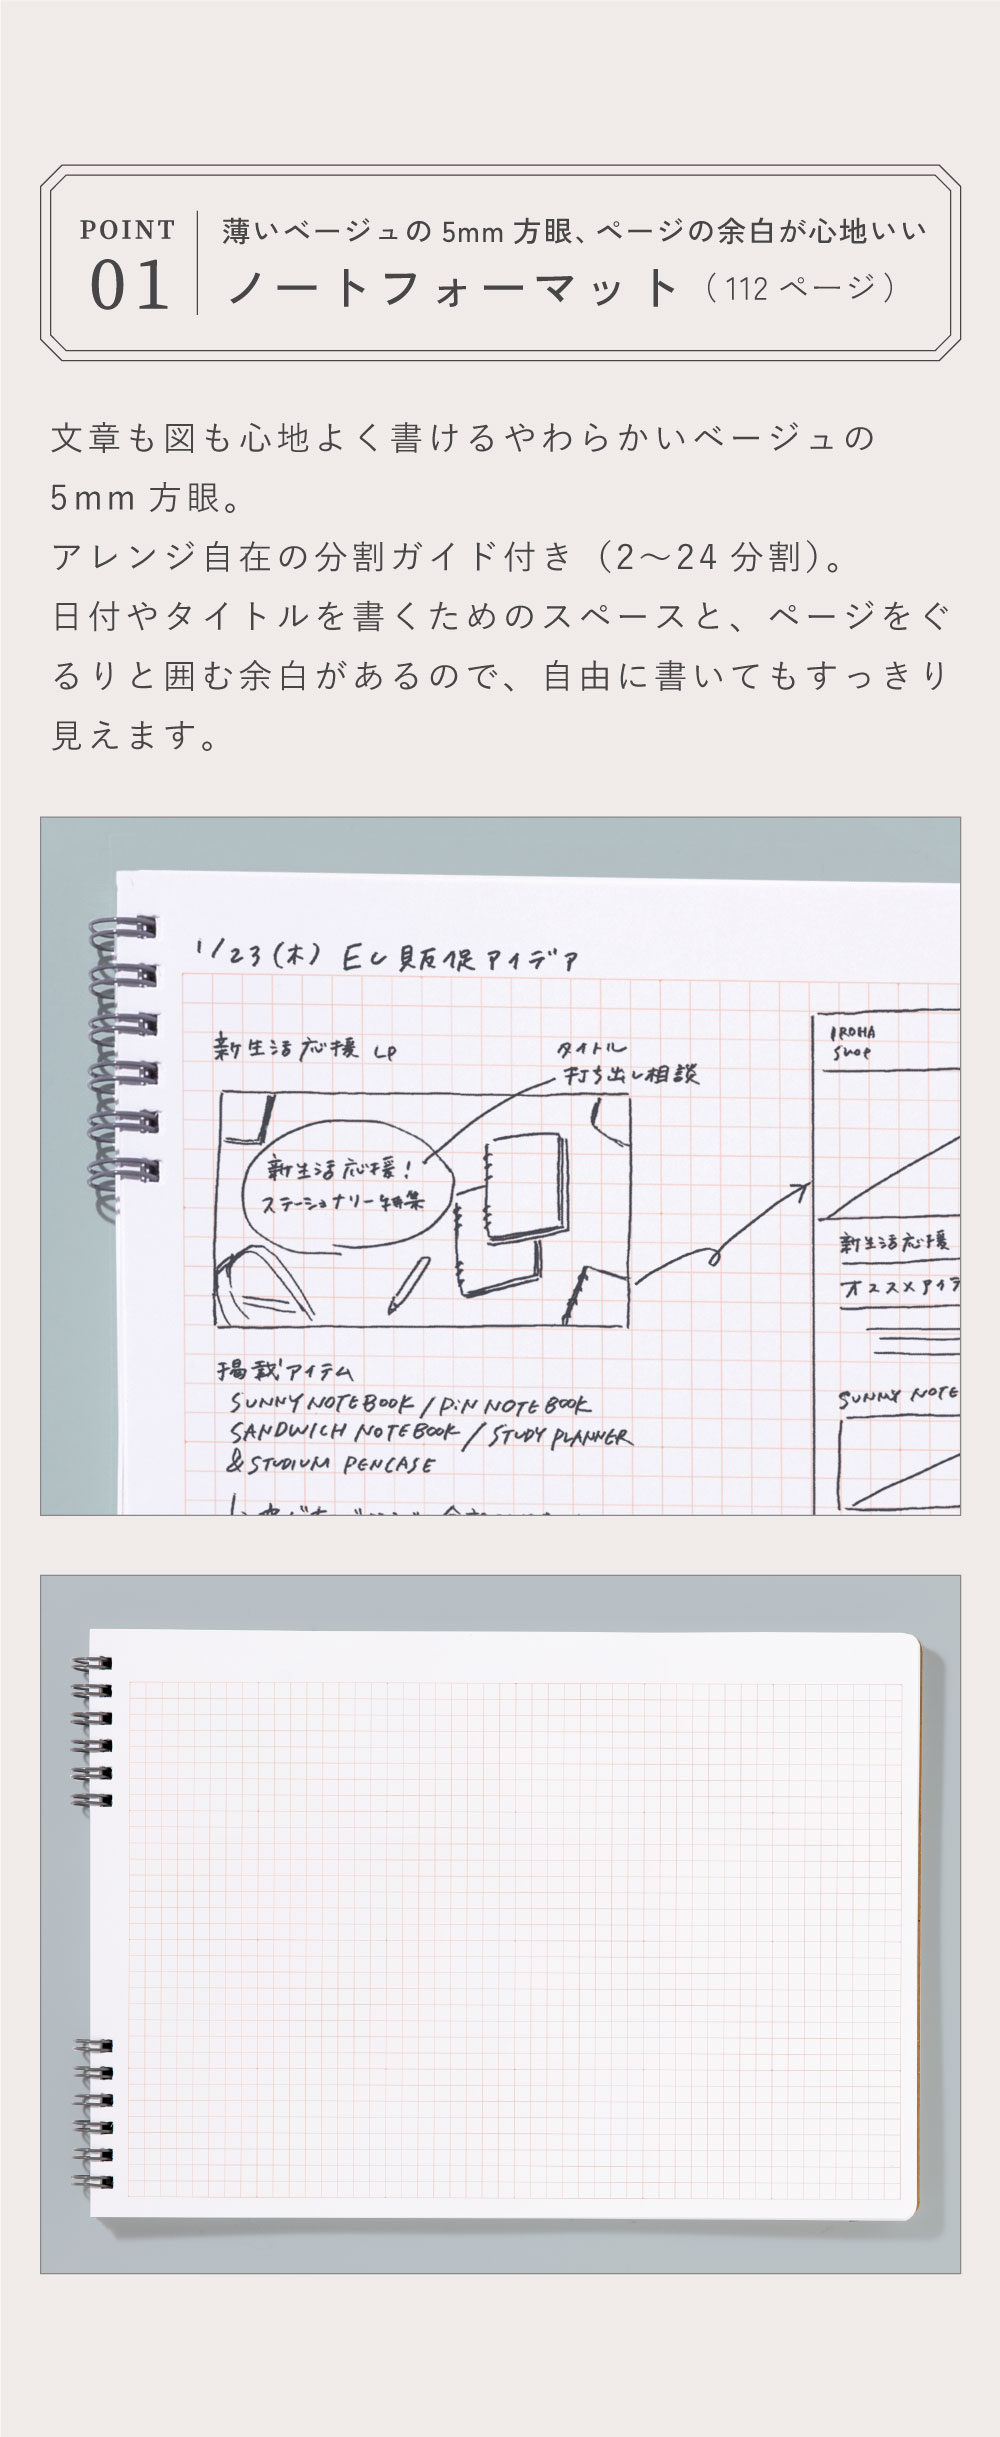 POINT
01
薄いベージュの 5mm 方眼、ページの余白が心地いい
ノートフォーマット（112 ページ）
文章も図も心地よく書けるやわらかいベージュの
5mm 方眼。
アレンジ自在の分割ガイド付き（2〜24 分割）。
日付やタイトルを書くためのスペースと、ページをぐ
るりと囲む余白があるので、自由に書いてもすっきり
見えます。
1/23(木) EC販促アイデア
新生活応援 LP
タイトル
打ち出し相談
新生活応援!
ステーショナリー特集
掲載アイテム
SUNNY NOTEBOOK / PiN NOTEBOOK
SANDWICH NOTEBOOK / STUDY PLANNER
& STUDIUM PENCASE
IROHA
SHOP
新生活応援
オススメアイテ
SUNNY NOTE